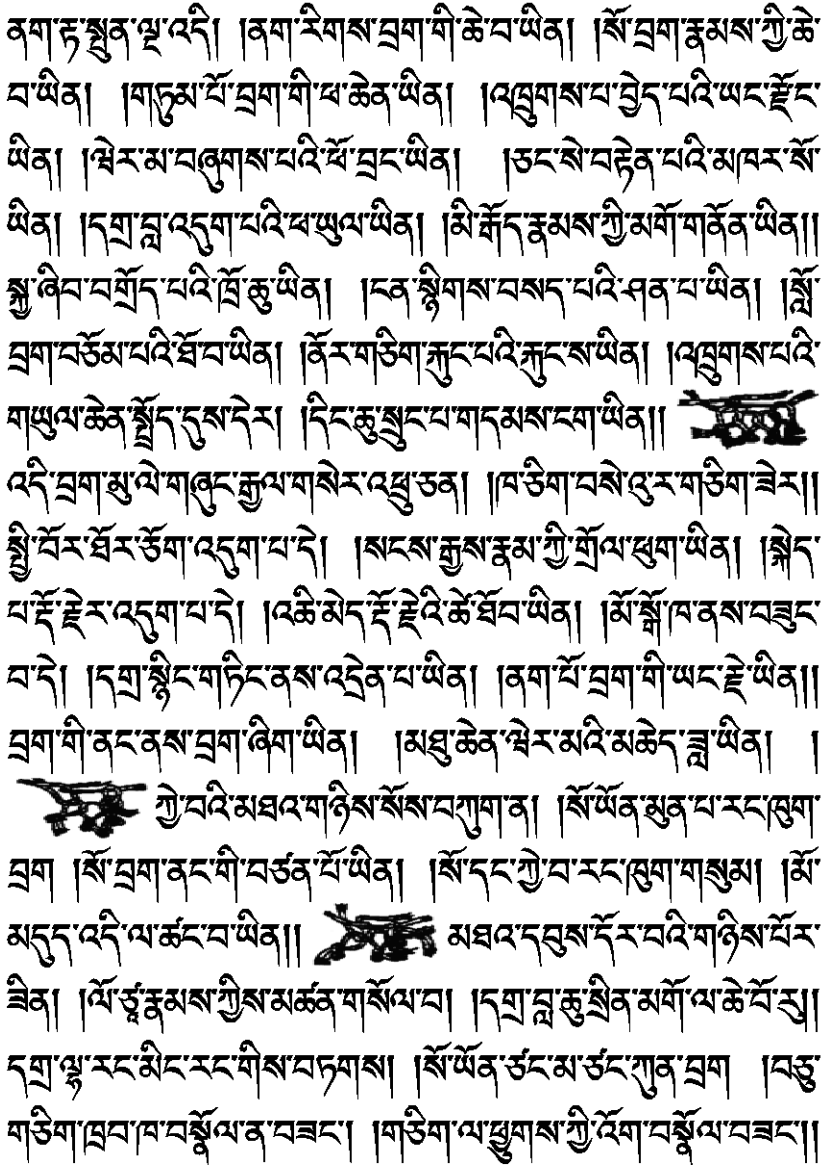 ནག་རྟ་སྤུན་ལྔ་འདི། །ནག་རིགས་བྲག་གི་ཆེ་བ་ཡིན། །སོ་བྲག་རྣམས་ཀྱི་ཆེ་
བ་ཡིན། །གཏུམ་པོ་བྲག་གི་ཕ་ཆེན་ཡིན། །འཁྲུགས་པ་བྱེད་པའི་ཡང་རྫོང་
ཡིན། །ཝེར་མ་བཞུགས་པའི་ཕོ་བྲང་ཡིན། །ཅང་སེ་བརྟེན་པའི་མཁར་སོ་
ཡིན། །དགྲ་བླ་འདུག་པའི་ཕ་ཡུལ་ཡིན། །མི་རྒོད་རྣམས་ཀྱི་མགོ་གནོན་ཡིན།།
སྐྱ་ཞིབ་བགྲོད་པའི་ཁྲོ་ཆུ་ཡིན། །ངན་སྙིགས་བསད་པའི་ཤན་པ་ཡིན། །སློ་
བྲག་བཅོམ་པའི་ཐོ་བ་ཡིན། །ནོར་གཅིག་རྐུང་པའི་རྐུང་ས་ཡིན། །འཁྲུགས་པའི་
གཡུལ་ཆེན་སྤྲོད་དུས་དེར། །དིང་ཆུ་སྲུང་པ་གདམས་ངག་ཡིན།།
འདི་བྲག་མུ་ལེ་གཞུང་རྒྱལ་གསེར་འཕྲུ་ཅན། །ཁ་ཅིག་བསེ་འུ་ར་གཅིག་ཟེར།།
སྤྱི་བོར་ཐོར་ཅོག་འདུག་པ་དེ། །སངས་རྒྱས་རྣམ་ཀྱི་གྲོལ་ཕུག་ཡིན། །སྐེད་
པ་རྡོ་རྗེར་འདུག་པ་དེ། །འཆི་མེད་རྡོ་རྗེའི་ཚེ་ཐོབ་ཡིན། །མོ་སྒོ་ཁ་ནས་བཟུང་
བ་དེ། །དགྲ་སྙིང་གཏིང་ནས་འདྲེན་པ་ཡིན། །ནག་པོ་བྲག་གི་ཡང་རྗེ་ཡིན།།
བྲག་གི་ནང་ནས་བྲག་ཞིག་ཡིན། །མཐུ་ཆེན་ཝེར་མའི་མཆེད་ཟླ་ཡིན། །
ཀྱེ་བའི་མཐའ་གཉིས་སོས་བཀུག་ན། །སོ་ཡོན་མུན་པ་རང་ཁུག་
བྲག །སོ་བྲག་ནང་གི་བཙན་པོ་ཡིན། །སོ་དང་ཀྱེ་བ་རང་ཁུག་གསུམ། །མོ་
མདུད་འདི་ལ་ཚང་བ་ཡིན།། མཐའ་དབུས་དོར་བའི་གཉིས་པོར་
ཟིན། །ལོ་ཙཱ་རྣམས་ཀྱིས་མཚན་གསོལ་བ། །དགྲ་བླ་ཆུ་སྲིན་མགོ་ལ་ཆེ་བོ་རུ།།
དགྲ་ལྷ་རང་མིང་རང་གིས་བཏགས། །སོ་ཡོན་ཙང་མ་ཙང་ཀུན་བྲག །བཅུ་
གཅིག་ཁྲབ་ཁ་བསྣོལ་ན་བཟང་། །གཅིག་ལ་ཕྱུགས་ཀྱི་འོག་བསྣོལ་བཟང་།།